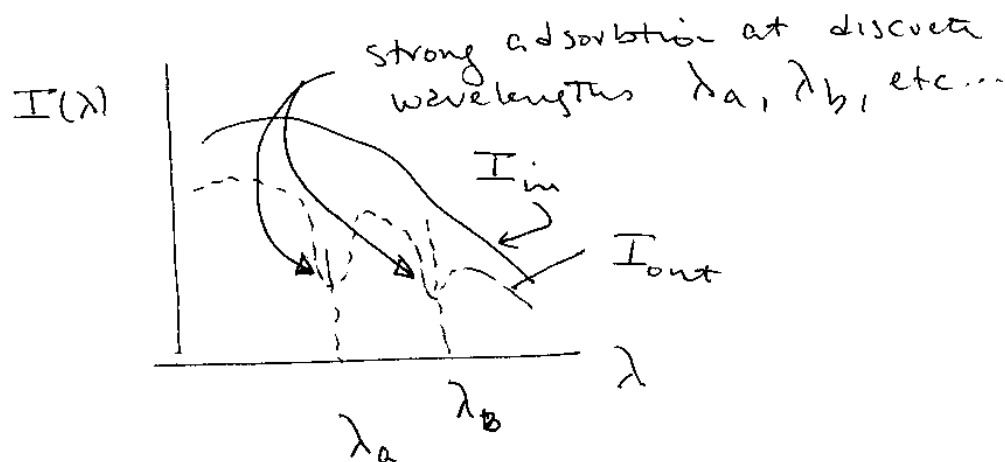 strong adsorbtion at discrete
wavelengths λa, λb, etc...
I(λ)
Iin
Iout
λ
λB
λa